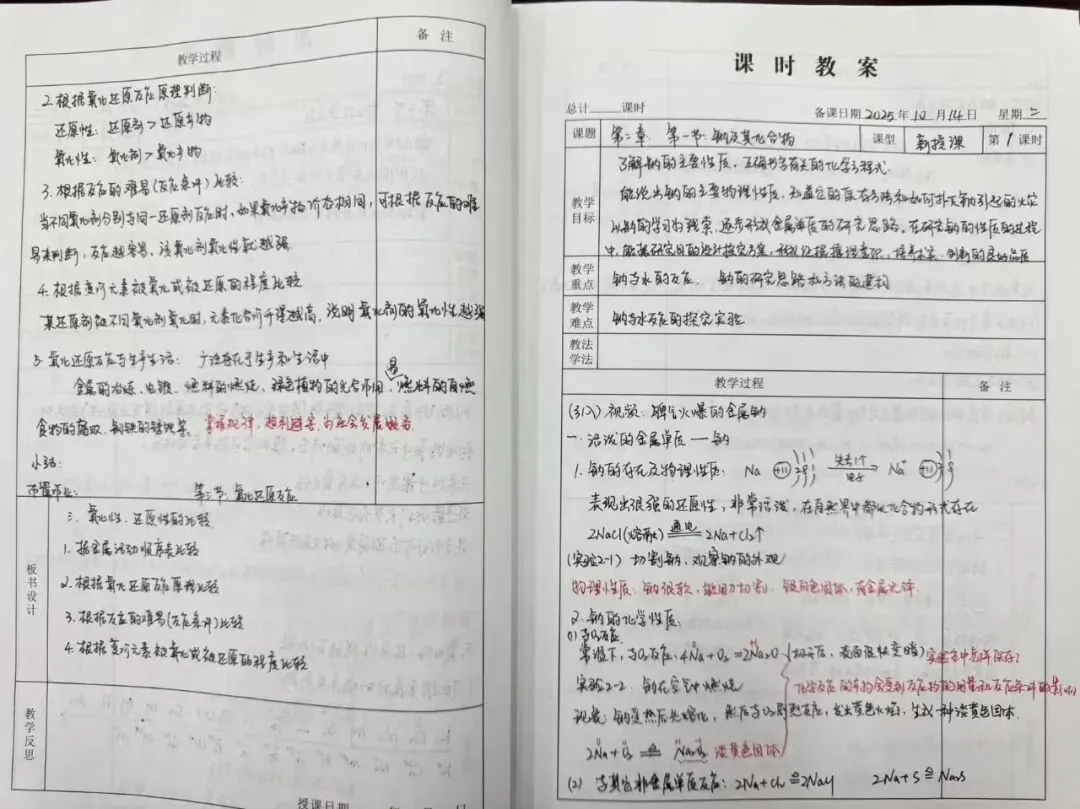 教学过程
备 注
2.根据氧化还原反应原理判断:
还原性: 还原剂>还原产物
氧化性: 氧化剂>氧化产物
3.根据反应的难易(反应条件)比较:
当不同氧化剂分别与同一还原剂反应时,如果氧化产物价态相同,可根据反应的难
易来判断,反应越容易,该氧化剂氧化性就越强
4.根据变价元素被氧化或被还原的程度比较
某还原剂被不同氧化剂氧化时,元素化合价升得越高,说明氧化剂的氧化性越强
5.氧化还原反应与生产生活: 广泛存在于生产和生活中
金属的冶炼、电镀、燃料的燃烧、绿色植物的光合作用是;燃料的自燃
食物的腐败、钢铁的锈蚀等。掌握规律,趋利避害,为社会发展服务
小结:
布置作业:
板书设计
第三节 氧化还原反应
三、氧化性、还原性的比较
1.据金属活动顺序表比较
2.根据氧化还原反应原理比较
3.根据反应的难易(反应条件)比较
4.根据变价元素被氧化或被还原的程度比较
教学反思
授课日期
课 时 教 案
总计 课时
备课日期2025年10月14日 星期二
课题 第二章 第一节 钠及其化合物 课型 新授课 第1课时
教学目标
了解钠的主要性质,正确书写有关的化学方程式.
能说出钠的主要物理性质,知道它的保存方法和如何扑灭钠引起的火灾
以钠的学习为线索,逐步形成金属单质的研究思路。在研究钠的性质的过程
中,能根据研究目的设计探究方案,形成证据推理意识,培养求实、创新的良好品质
教学重点 钠与水的反应, 钠的研究思路和方法的建构
教学难点 钠与水反应的探究实验
教法学法
教学过程
备 注
(引入)视频:脾气火爆的金属钠
一.活泼的金属单质——钠
1.钠的存在及物理性质: Na +11 2 8 1 失去1个电子 → Na⁺ +11 2 8
表现出很强的还原性,非常活泼,在自然界中都以化合物形式存在
2NaCl(熔融) 通电 2Na+Cl₂↑
(实验2-1) 切割钠,观察钠的外观
物理性质: 钠很软,能用刀切割. 银白色固体,有金属光泽.
2.钠的化学性质:
(1)与O₂反应.
常温下,与O₂反应: 4Na+O₂=2Na₂O (切开后,表面很快变暗) 实验室中怎样保存?
化学反应的产物会受到反应物的用量和反应条件的影响
实验2-2 钠在空气中燃烧
现象: 钠受热后先熔化,然后与O₂剧烈反应,发出黄色火焰,生成一种淡黄色固体.
2Na+O₂ △ Na₂O₂ 淡黄色固体
(2) 与其它非金属单质反应: 2Na+Cl₂ △ 2NaCl 2Na+S △ Na₂S